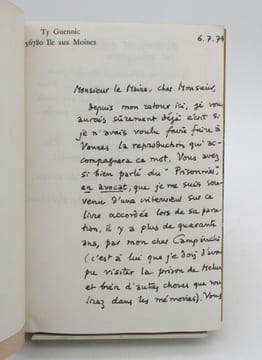 Ty Guennic
56780 Ile aux Moines
6.7.74
Monsieur le Maire, cher Monsieur,
depuis mon retour ici, je vous
aurais sûrement déjà écrit si
je n'avais voulu faire faire à
Vannes la reproduction qui ac-
compagnera ce mot. Vous avez
si bien parlé du "Prisonnier",
en avocat, que je me suis sou-
venu d'une interview sur ce
livre accordée lors de sa paru-
tion, il y a plus de quarante
ans, par mon cher Campinchi
(c'est à lui que je dois d'avoir
pu visiter la prison de Melun
et bien d'autres choses que vous
lirez dans les mémoires). Vous